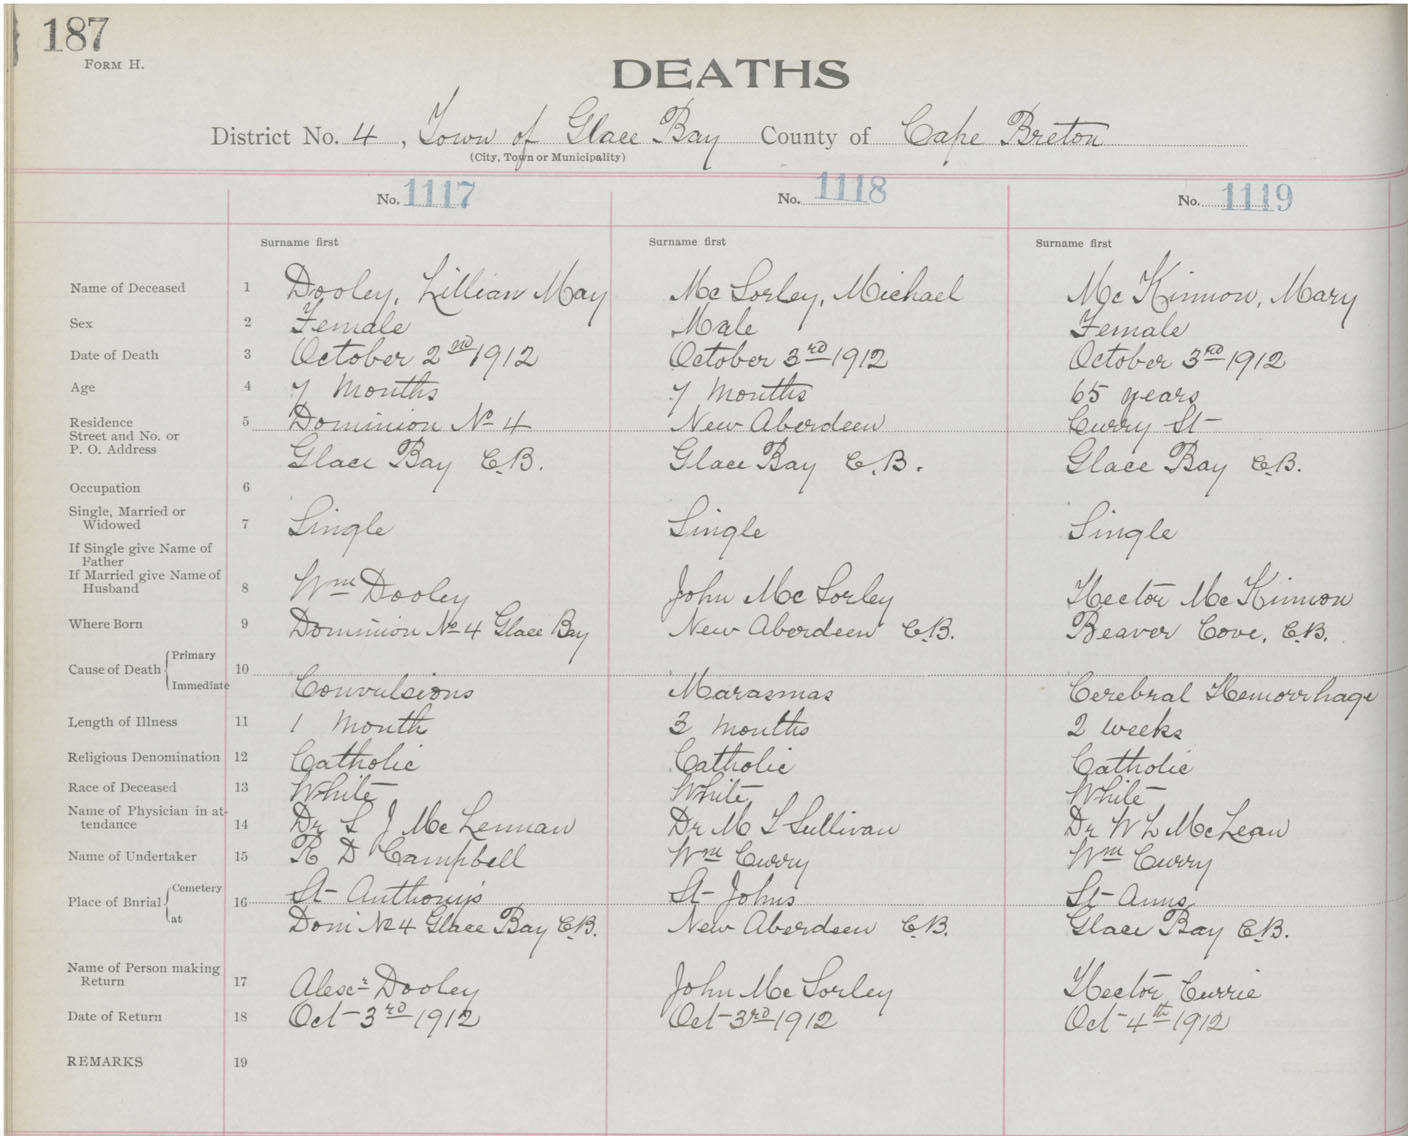 187
FORM H.
DEATHS
District No. 4, Town of Glace Bay County of Cape Breton
(City, Town or Municipality)
No. 1117 No. 1118 No. 1119
Surname first Surname first Surname first
Name of Deceased 1 Dooley, Lillian May Mc Sorley, Michael Mc Kinnon, Mary
Sex 2 Female Male Female
Date of Death 3 October 2nd 1912 October 3rd 1912 October 3rd 1912
Age 4 7 Months 7 Months 65 years
Residence 5 Dominion No 4 New Aberdeen Curry St
Street and No. or
P. O. Address Glace Bay C.B. Glace Bay C.B. Glace Bay C.B.
Occupation 6
Single, Married or
Widowed 7 Single Single Single
If Single give Name of
Father
If Married give Name of
Husband 8 Wm Dooley John Mc Sorley Hector Mc Kinnon
Where Born 9 Dominion No 4 Glace Bay New Aberdeen C.B. Beaver Cove, C.B.
Cause of Death Primary 10
Immediate Convulsions Marasmas Cerebral Hemorrhage
Length of Illness 11 1 Month 3 Months 2 weeks
Religious Denomination 12 Catholic Catholic Catholic
Race of Deceased 13 White White White
Name of Physician in at-
tendance 14 Dr S J Mc Lennan Dr M T Sullivan Dr W L McLean
Name of Undertaker 15 R D Campbell Wm Curry Wm Curry
Place of Burial Cemetery 16 St Anthonys St Johns St Anns
at Domi No 4 Glace Bay C.B. New Aberdeen C.B. Glace Bay C.B.
Name of Person making
Return 17 Alexr Dooley John Mc Sorley Hector Currie
Date of Return 18 Oct 3rd 1912 Oct 3rd 1912 Oct 4th 1912
REMARKS 19